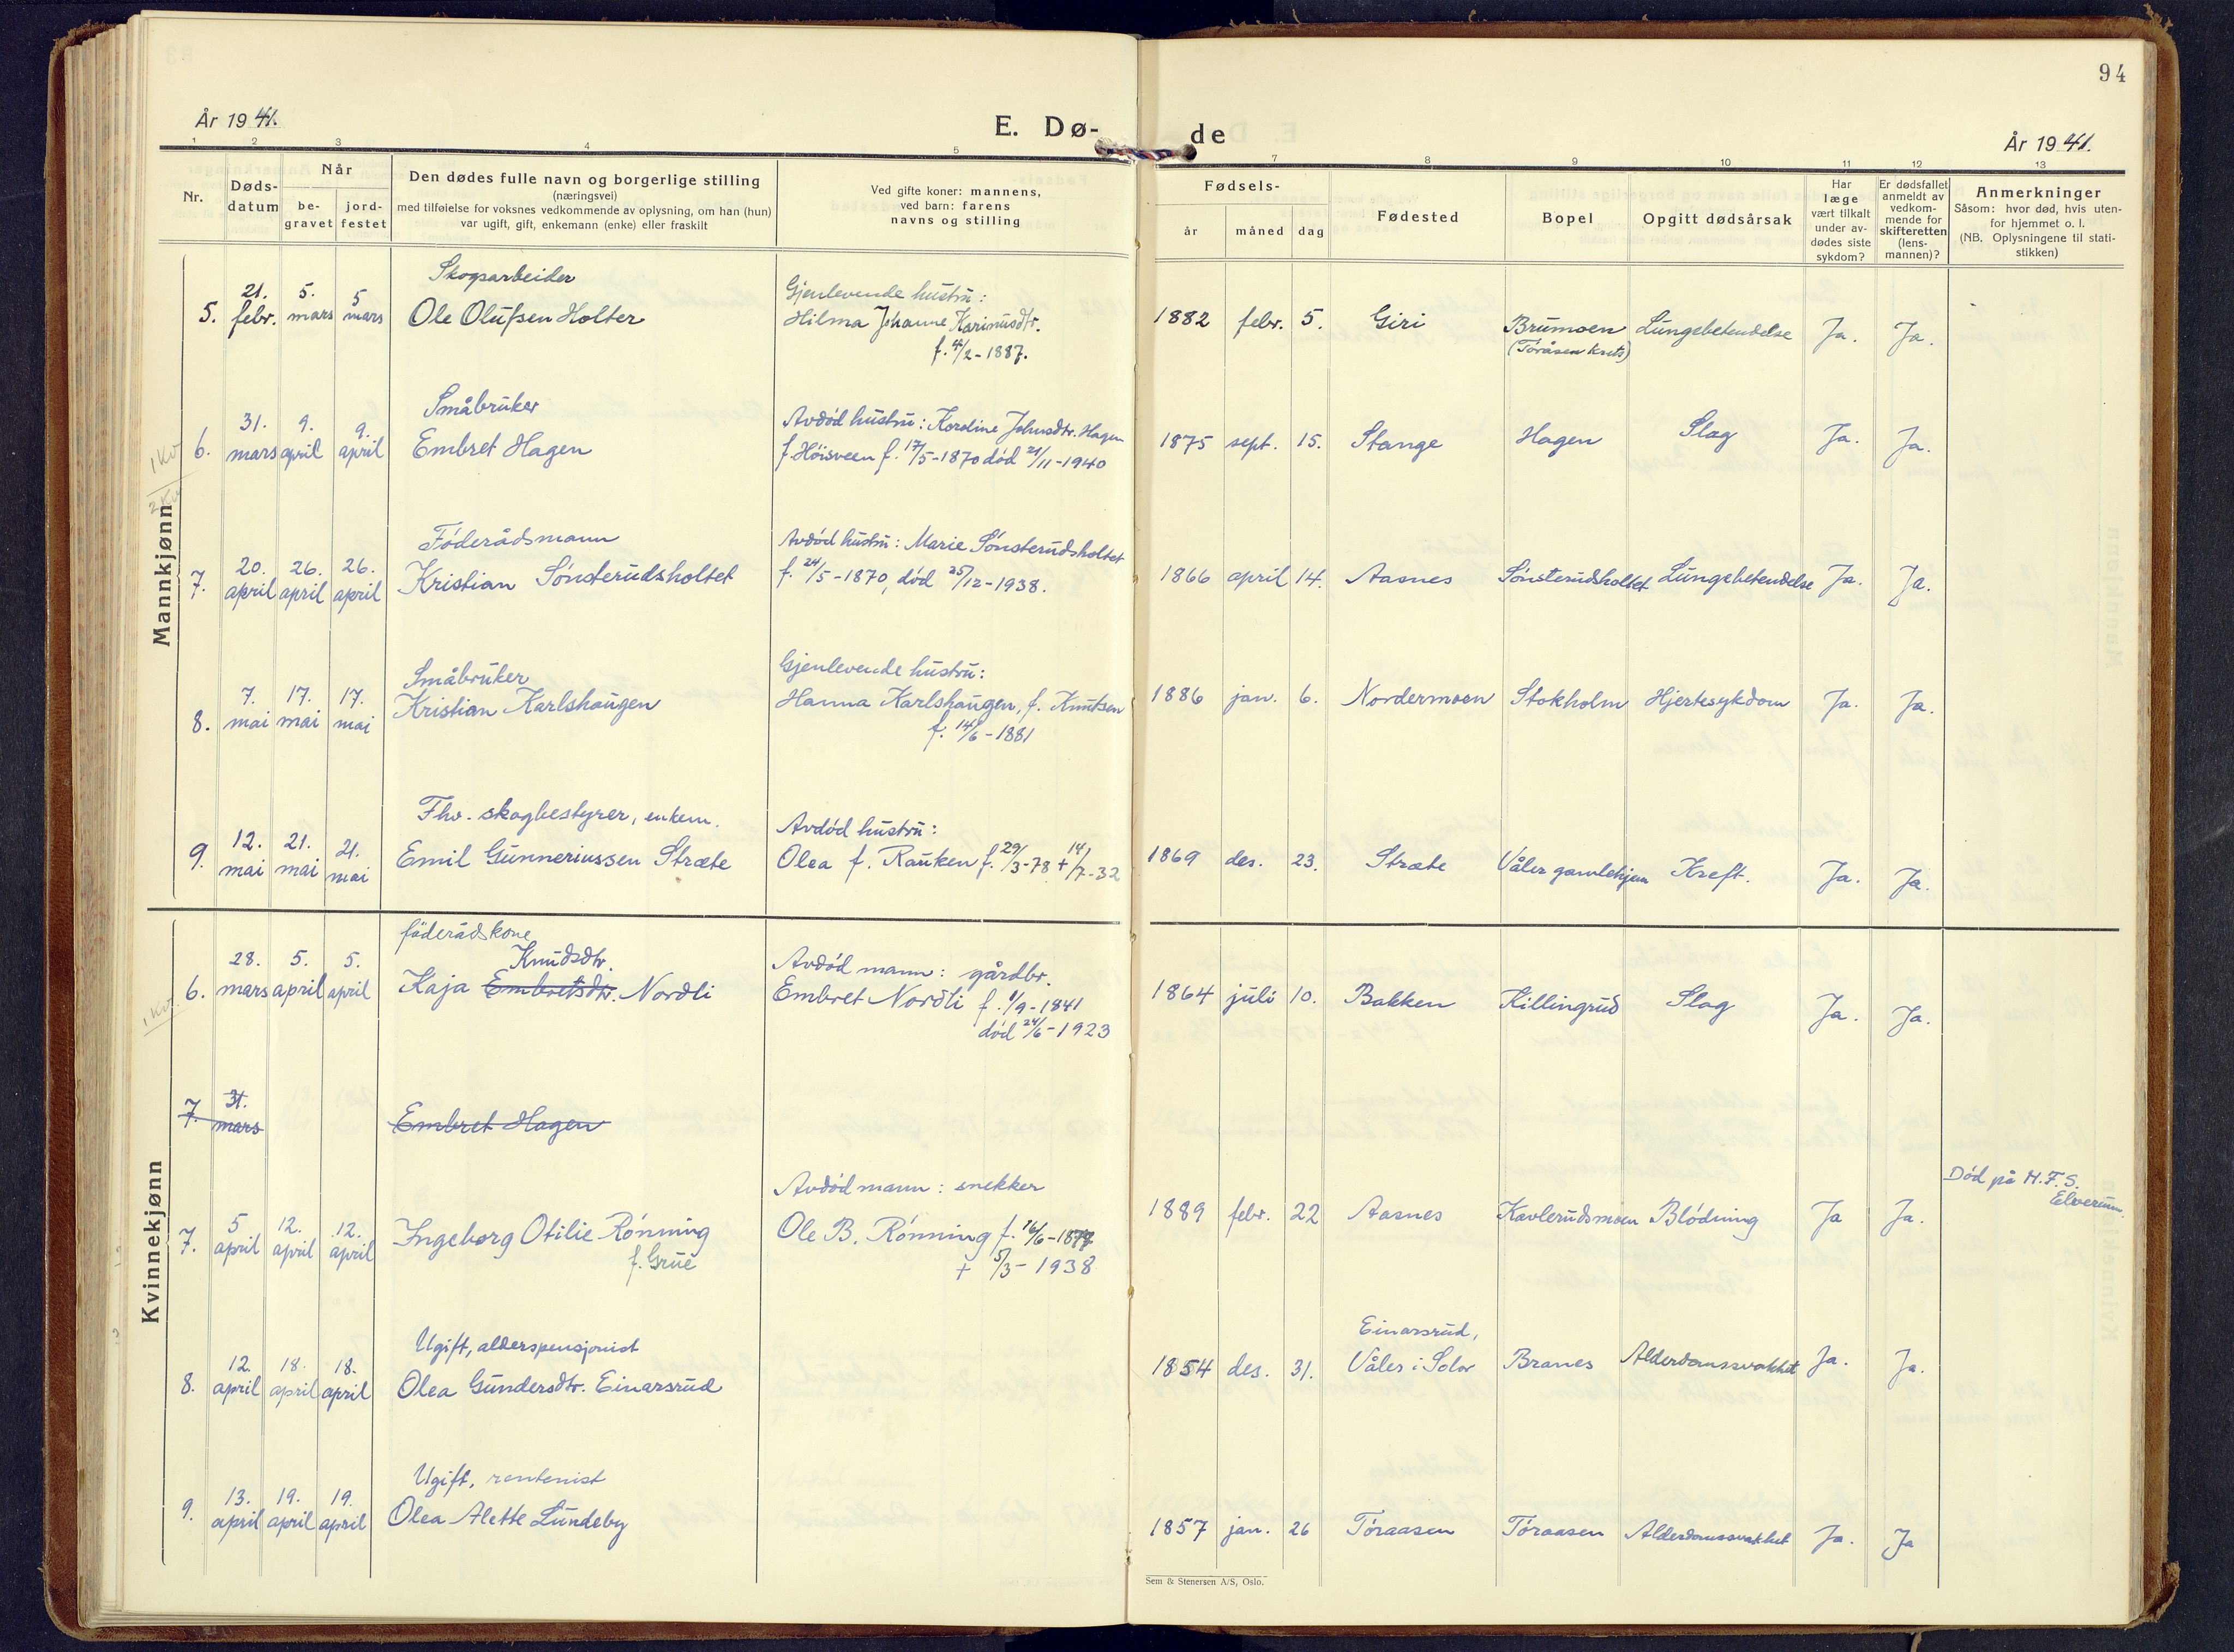 94
År 1941.
E. Dø-
de
År 1941.
1 2 3 4 5 7 8 9 10 11 12 13
Nr.
Døds-
datum
Når
be-
gravet
jord-
festet
Den dødes fulle navn og borgerlige stilling
(næringsvei)
med tilføielse for voksnes vedkommende av oplysning, om han (hun)
var ugift, gift, enkemann (enke) eller fraskilt
Ved gifte koner: mannens,
ved barn: farens
navns og stilling
Fødsels-
år måned dag
Fødested
Bopel
Opgitt dødsårsak
Har
læge
vært tilkalt
under av-
dødes siste
sykdom?
Er dødsfallet
anmeldt av
vedkom-
mende for
skifteretten
(lens-
mannen)?
Anmerkninger
Såsom: hvor død, hvis uten-
for hjemmet o. l.
(NB. Oplysningene til stati-
stikken)
Mannkjønn
Skogsarbeider
5. 21. febr. 5. mars 5 mars Ole Olufsen Holter
Gjenlevende hustru:
Hilma Johanne Karinusdtr.
f. 4/2-1887.
1882 febr. 5. Giri Brumoen Lungebetendelse Ja. Ja.
(Toråsen krets)
1 Kv.
2 Kv.
Småbruker
6. 31. mars 9. april 9. april Embret Hagen
Avdød hustru: Karoline Johnsdtr. Hagen
f. Høisveen f. 17/5-1870 død 21/11-1940
1875 sept. 15. Stange Hagen Slag Ja. Ja.
Føderådsmann
7. 20. april 26. april 26. april Kristian Sønsterudsholtet
Avdød hustru: Marie Sønsterudsholtet
f. 24/5-1870, død 25/12-1938.
1866 april 14. Aasnes Sønsterudholtet Lungebetendelse Ja. Ja.
Småbruker
8. 7. mai 17. mai 17. mai Kristian Karlshaugen
Gjenlevende hustru:
Hanna Karlshaugen, f. Knutsen
f. 14/6-1881
1886 jan. 6. Nordermoen Stokholm Hjertesykdom Ja. Ja.
Fhv. skogbestyrer, enkem.
9. 12. mai 21. mai 21. mai Emil Gunneriussen Stræte
Avdød hustru:
Olea f. Rauken f. 29/3-78 + 14/7-32
1869 des. 23. Stræte Våler gamlehjem Kreft. Ja. Ja.
Kvinnekjønn
1 Kv.
føderådskone
Knudsdtr.
6. 28. mars 5. april 5. april Kaja Embretsdtr. Nordli
Avdød mann: gårdbr.
Embret Nordli f. 1/9-1841
død 24/6-1923
1864 juli 10. Bakken Killingrud Slag Ja. Ja.
7. 31. mars Embret Hagen
7. 5 april 12. april 12. april Ingeborg Otilie Rønning
f. Grue
Avdød mann: snekker
Ole B. Rønning f. 16/6-1877
+ 5/3-1938
1889 febr. 22 Aasnes Kavlerudsmoen Blødning Ja Ja.
Død på H.F.S.
Elverum.
Ugift, alderspensjonist
8. 12. april 18. april 18. april Olea Gundersdtr. Einarsrud
Einarsrud,
1854 des. 31. Våler i Solør Branes Alderdomssvakhet Ja. Ja.
Ugift, rentenist
9. 13. april 19. april 19. april Olea Alette Lundeby
1857 jan. 26 Toraasen Toraasen Alderdomssvakhet Ja. Ja
Sem & Stenersen A/S, Oslo.